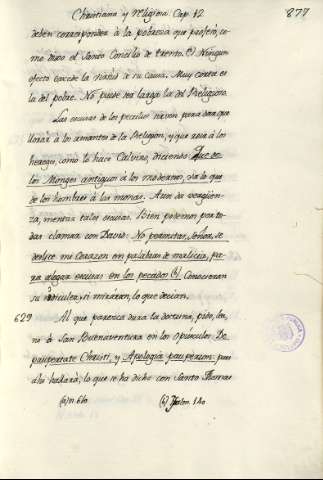 Christiana y Religiosa Cap. 12
877
deben corresponder à la pobreza que profesò, co-
mo dixo el Santo Concilio de trento. (a) Ningun
efecto excede la raiz ò su causa. Muy corta es
la del pobre. No puede ser larga la del Religioso.
Las escusas de los pecados sirven para dar que
llorar à los amantes de la Religion, y que reir à los
hereges, como lo hace Calvino, diciendo Que de
los Monges antiguos à los modernos, va lo que
de los hombres à las monas. Aun da vergüen-
za, mentar tales escusas. Bien podemos por to-
dos clamar con David: No permitas, Señor, se
deslice mi Corazon en palabras de malicia, pa-
ra alegar escusas en los pecados (b). Conocieran
su ridiculez, si miráran, lo que decian.
629 Al que parezca dura la doctrina, pido, lea,
no à San Buenaventura en los Opusculos De
paupertate Christi, y Apologia pauperum: pues
ahi hallarà, lo que se ha dicho con Santo Thomas
(a) n. 610 (b) Psalm. 140